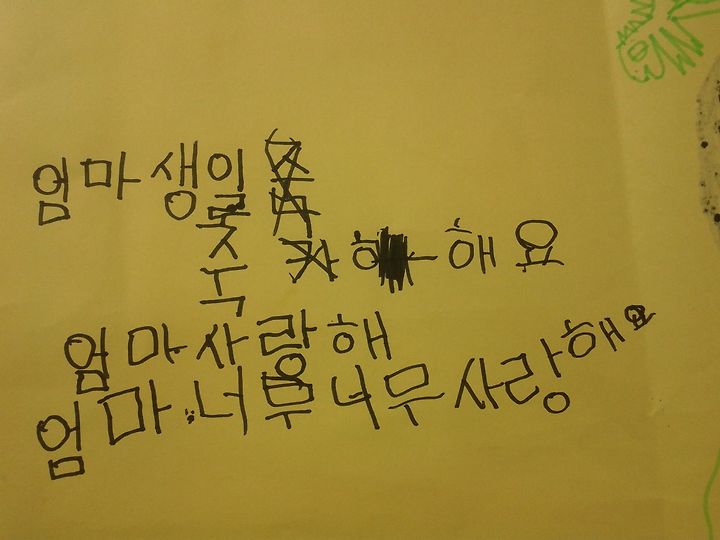 엄마 생일
축 하 해요
엄마 사랑해
엄마 너무너무 사랑해요